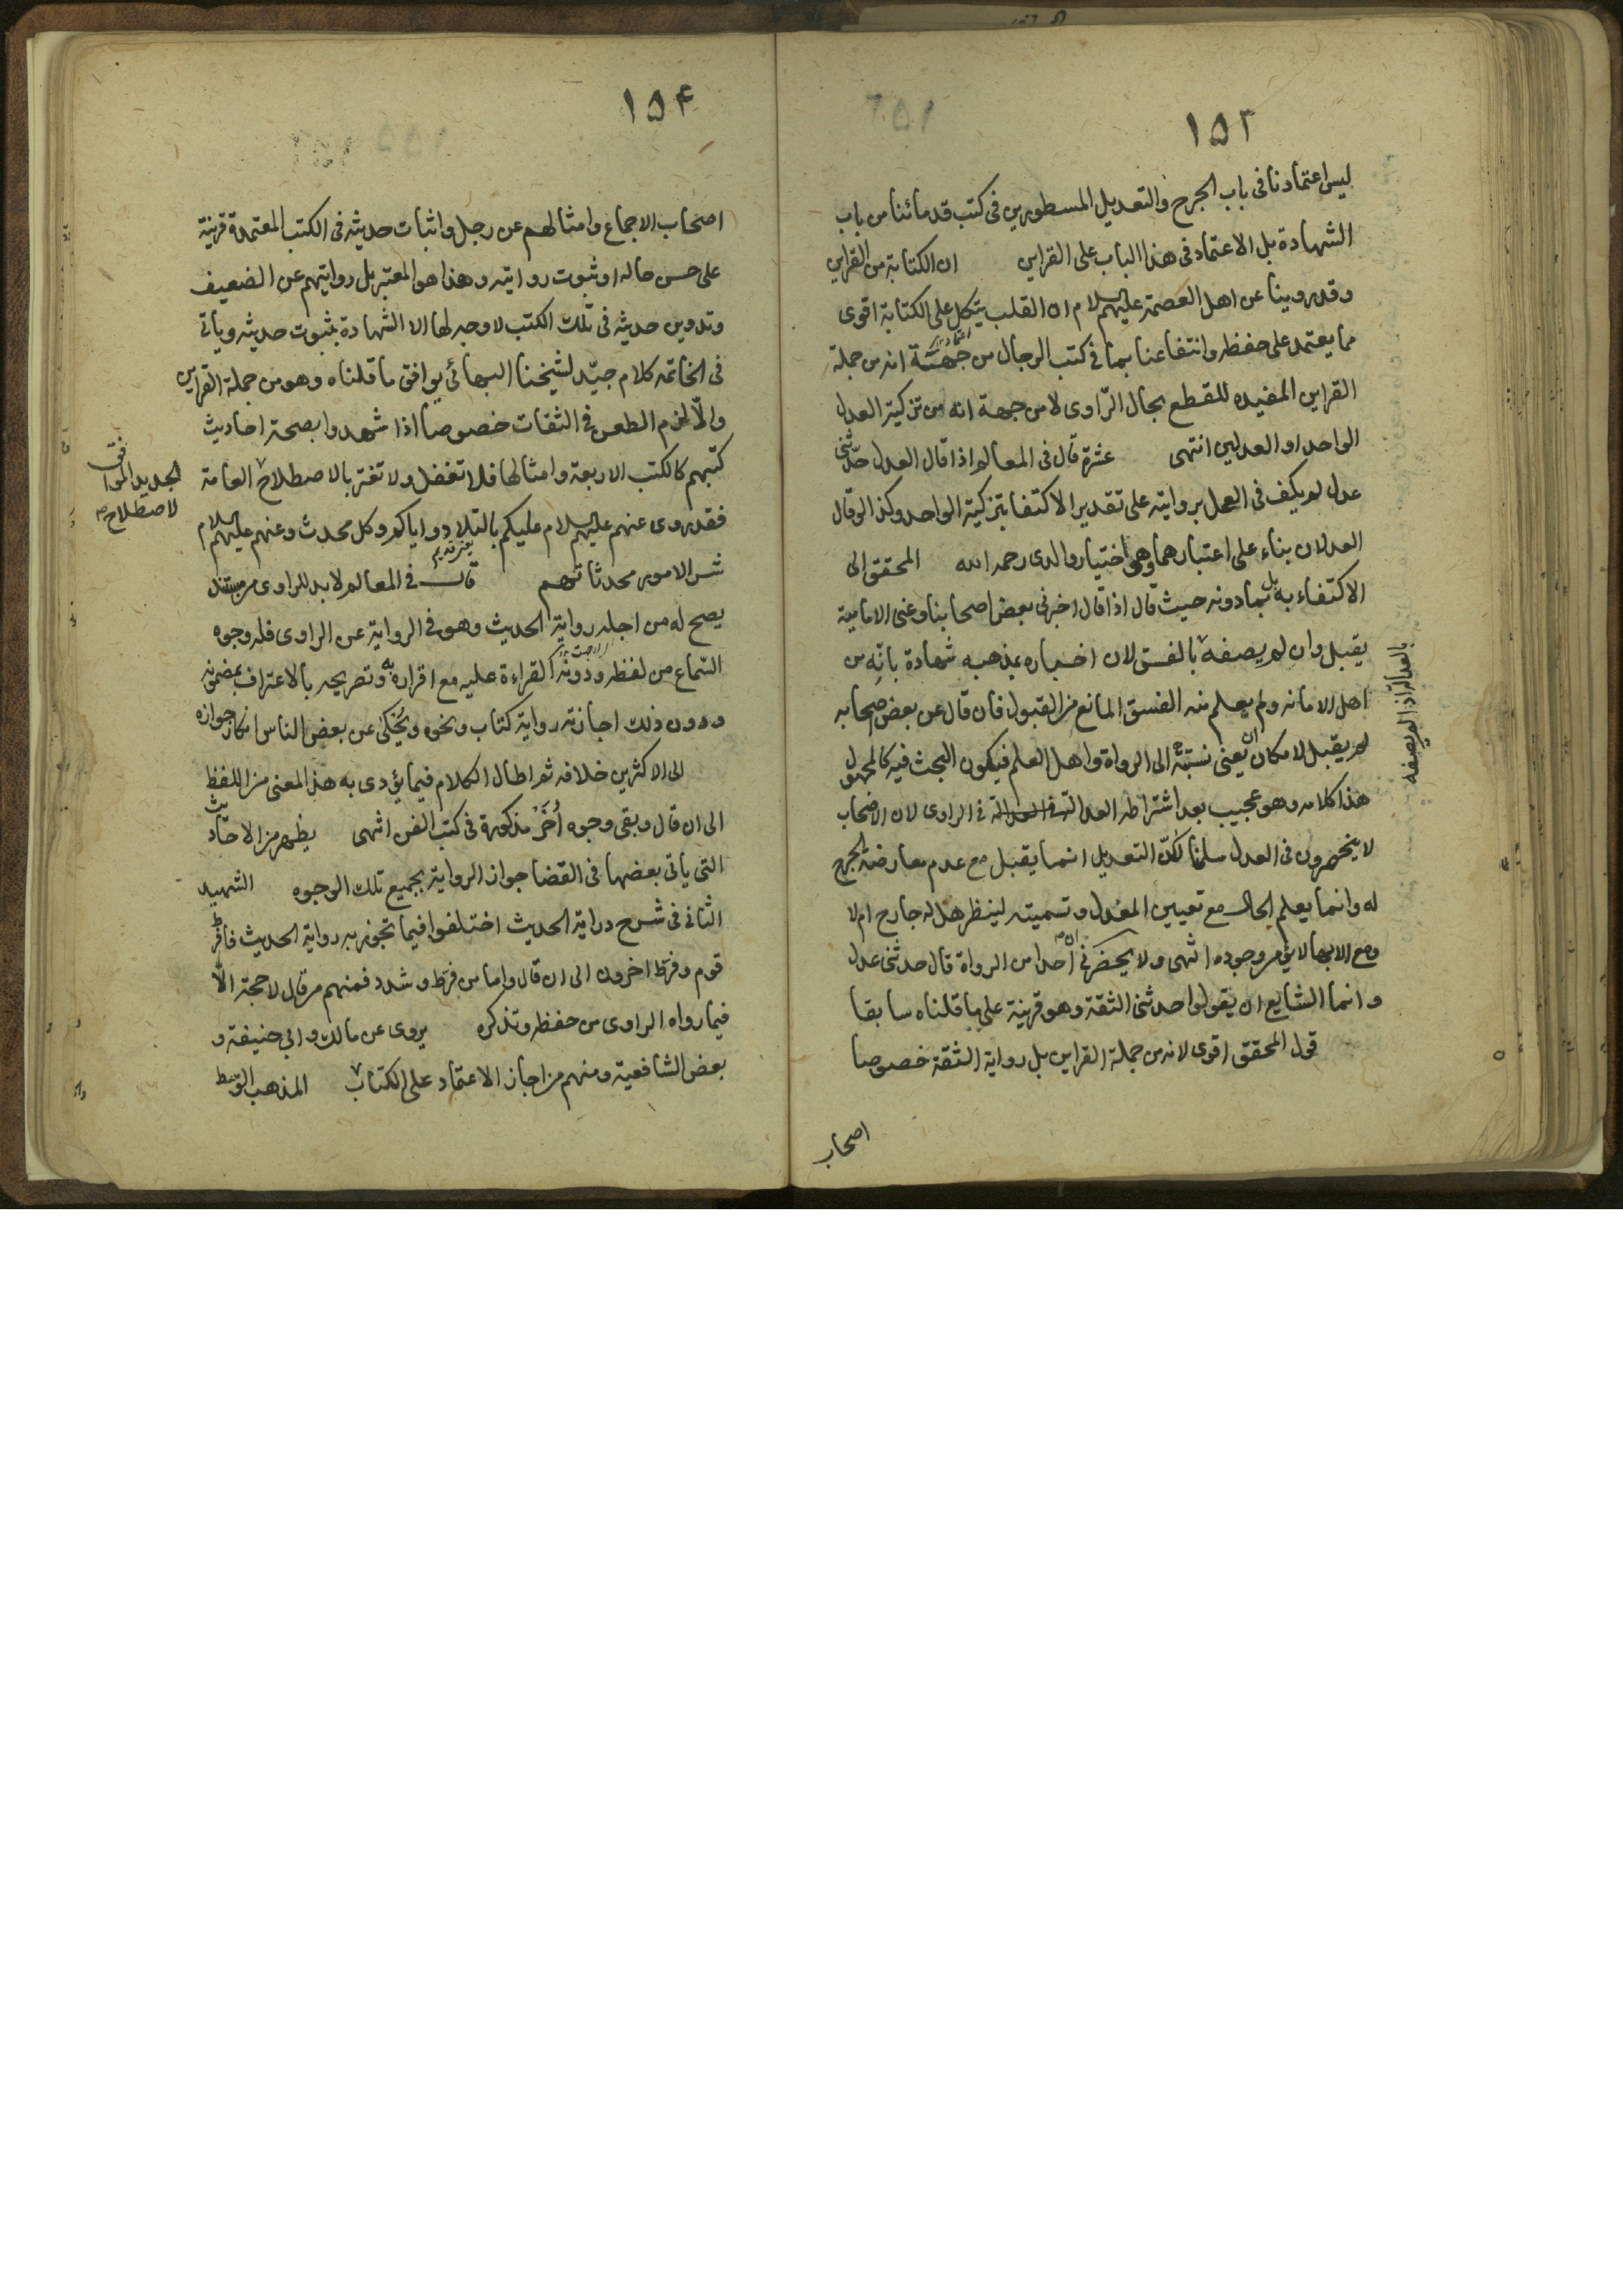 ١٥٣
ليس اعتمادنا فى باب الجرح والتعديل المسطورين فى كتب قدمائنا من باب
الشهادة بل الاعتماد فى هذا الباب على القراين ان الكتابة من القراين
وقد روينا عن اهل العصمة عليهم السلام ان القلب يتكل على الكتابة اقوى
مما يعتمد على حفظه وانتفاعنا بما فى كتب الرجال من جهة انه من جملة
القراين المفيده للقطع بحال الرّاوى لا من جهة انه من تزكية العدل
الواحد او العدلين انتهى عشرة قال فى المعالم اذا قال العدل حدّثنى
عدل لم يكف فى العمل بروايته على تقدير الاكتفا بتزكية الواحد وكذا لو قال
العدلان بناء على اعتبارهما وهو اختيار والدى رحمه الله المحقق الى
الاكتفاء به بل بما دونه حيث قال اذا قال اخبرنى بعض اصحابنا وعنى الامامية
يقبل وان لم يصفه بالفسق لان اخباره بمذهبه شهادة بانّه من
بالعدالة اذا لم يصفه
اهل الامانه ولم يعلم منه الفسق المانع من القبول فان قال عن بعض اصحابه
لم يقبل لامكان ان يعنى نسبته الى الرواة واهل العلم فيكون البحث فيه كالمجهول
هذا كلامه وهو عجيب بعد اشتراطه العدالة فى الراوى لان الاصحاب
لا ينحصرون فى العدل سلمنا لكنّ التعديل انما يقبل مع عدم معارضة الجرح
له وانما يعلم الحال مع تعيين المعدل وتسميته لينظر هل له جارح ام لا
ومع الابهام لا يؤمن وجوده انتهى ولا يحضرنى ان احدا من الرواة قال حدثنى عدل
وانما الشايع ان يقولوا حدثنى الثقة وهو قرينة على ما قلناه سابقا
قول المحقق اقوى لانه من جملة القراين بل رواية الثقة خصوصا
اصحاب
١٥۴
اصحاب الاجماع وامثالهم عن رجل واثبات حديثه فى الكتب المعتمدة قرينة
على حسن حاله او ثبوت روايته وهذا هو المعتبر بل روايتهم عن الضعيف
وتدوين حديثه فى تلك الكتب لا وجه لها الا الشهادة بثبوت حديثه وياتى
فى الخاتمه كلام جيّد لشيخنا البهائى يوافق ما قلناه وهو من جملة القراين
والّا لزم الطعن فى الثقات خصوصا اذا شهدوا بصحة احاديث
كتبهم كالكتب الاربعة وامثالها فلا تغفل ولا تغتر بالاصطلاح العامة
الجديد الموافق
لاصطلاح
فقد روى عنهم عليهم السلام عليكم بالتلاد واياكم وكل محدث وعنهم عليهم السلام
شر الامور محدثاتهم قال فى المعالم لا بد للراوى من مستند
يصح له من اجله رواية الحديث وهو فى الرواية عن الراوى فله وجوه
السّماع من لفظه ودونه القراءة عليه مع اقراره به وتصريحه بالاعتراف بمضمونه
ودون ذلك اجازته رواية كتاب ونحوه ويُحْكى عن بعض الناس انكار جوازه
الى الاكثرين خلافه ثم اطال الكلام فيما يؤدى به هذا المعنى من اللفظ
الى ان قال وبقى وجوه اُخَر مذكورة فى كتب الفن انتهى يظهر من الاحاديث
التى ياتى بعضها فى القضا جواز الرواية بجميع تلك الوجوه الشهيد
الثانى فى شرح دراية الحديث اختلفوا فيما تجوز به رواية الحديث فافرط
قوم وفرّط اخرون الى ان قال واما من فرّط وشدد فمنهم من قال لا حجة الّا
فيما رواه الراوى من حفظه وتذكره يروى عن مالك وابى حنيفة و
بعض الشافعية ومنهم من اجاز الاعتماد على الكتاب المذهب الوسط